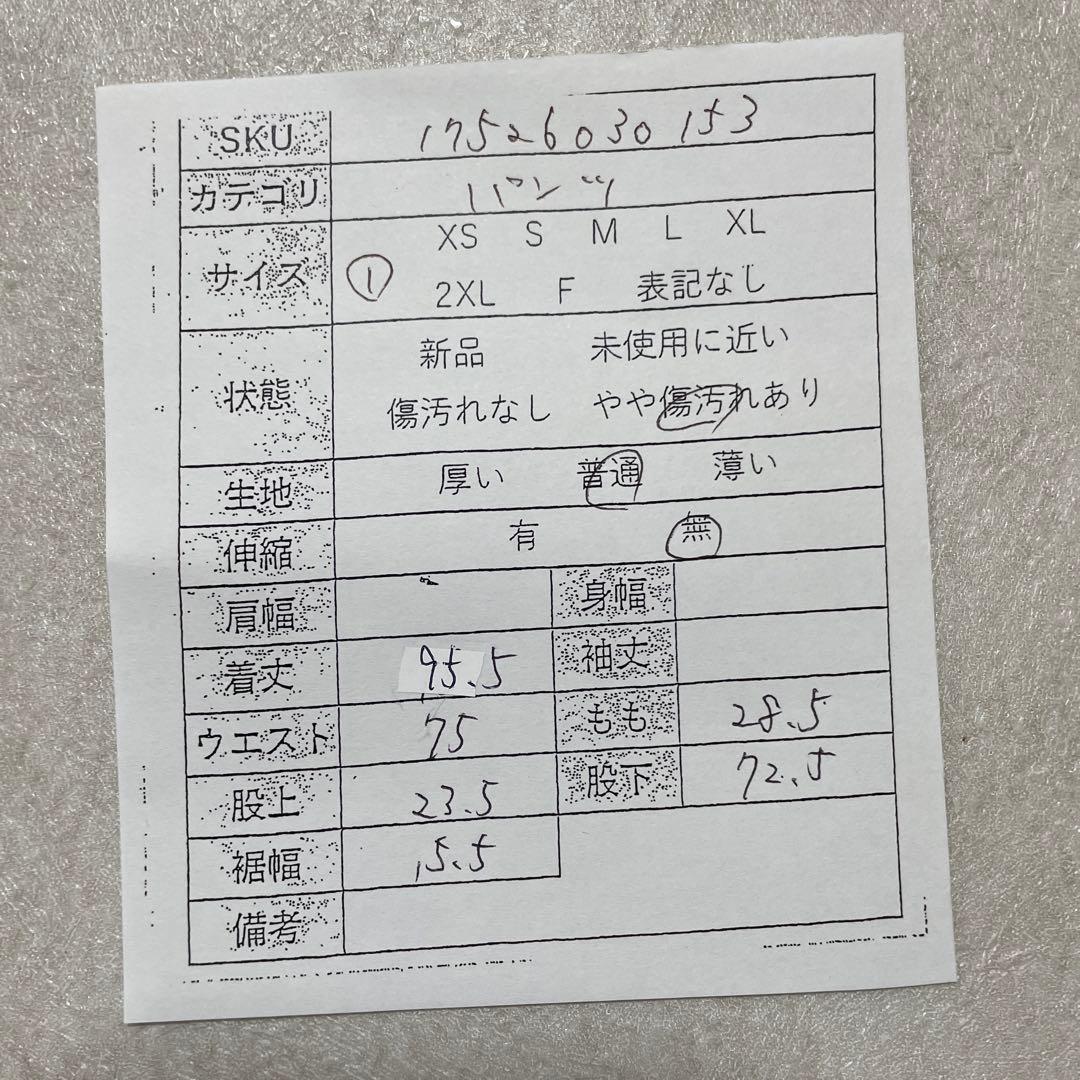 SKU 17526030153
カテゴリ パンツ
サイズ ① XS S M L XL
2XL F 表記なし
状態 新品 未使用に近い
傷汚れなし やや傷汚れあり
生地 厚い 普通 薄い
伸縮 有 無
肩幅 身幅
着丈 95.5 袖丈
ウエスト 75 もも 28.5
股上 23.5 股下 72.5
裾幅 15.5
備考